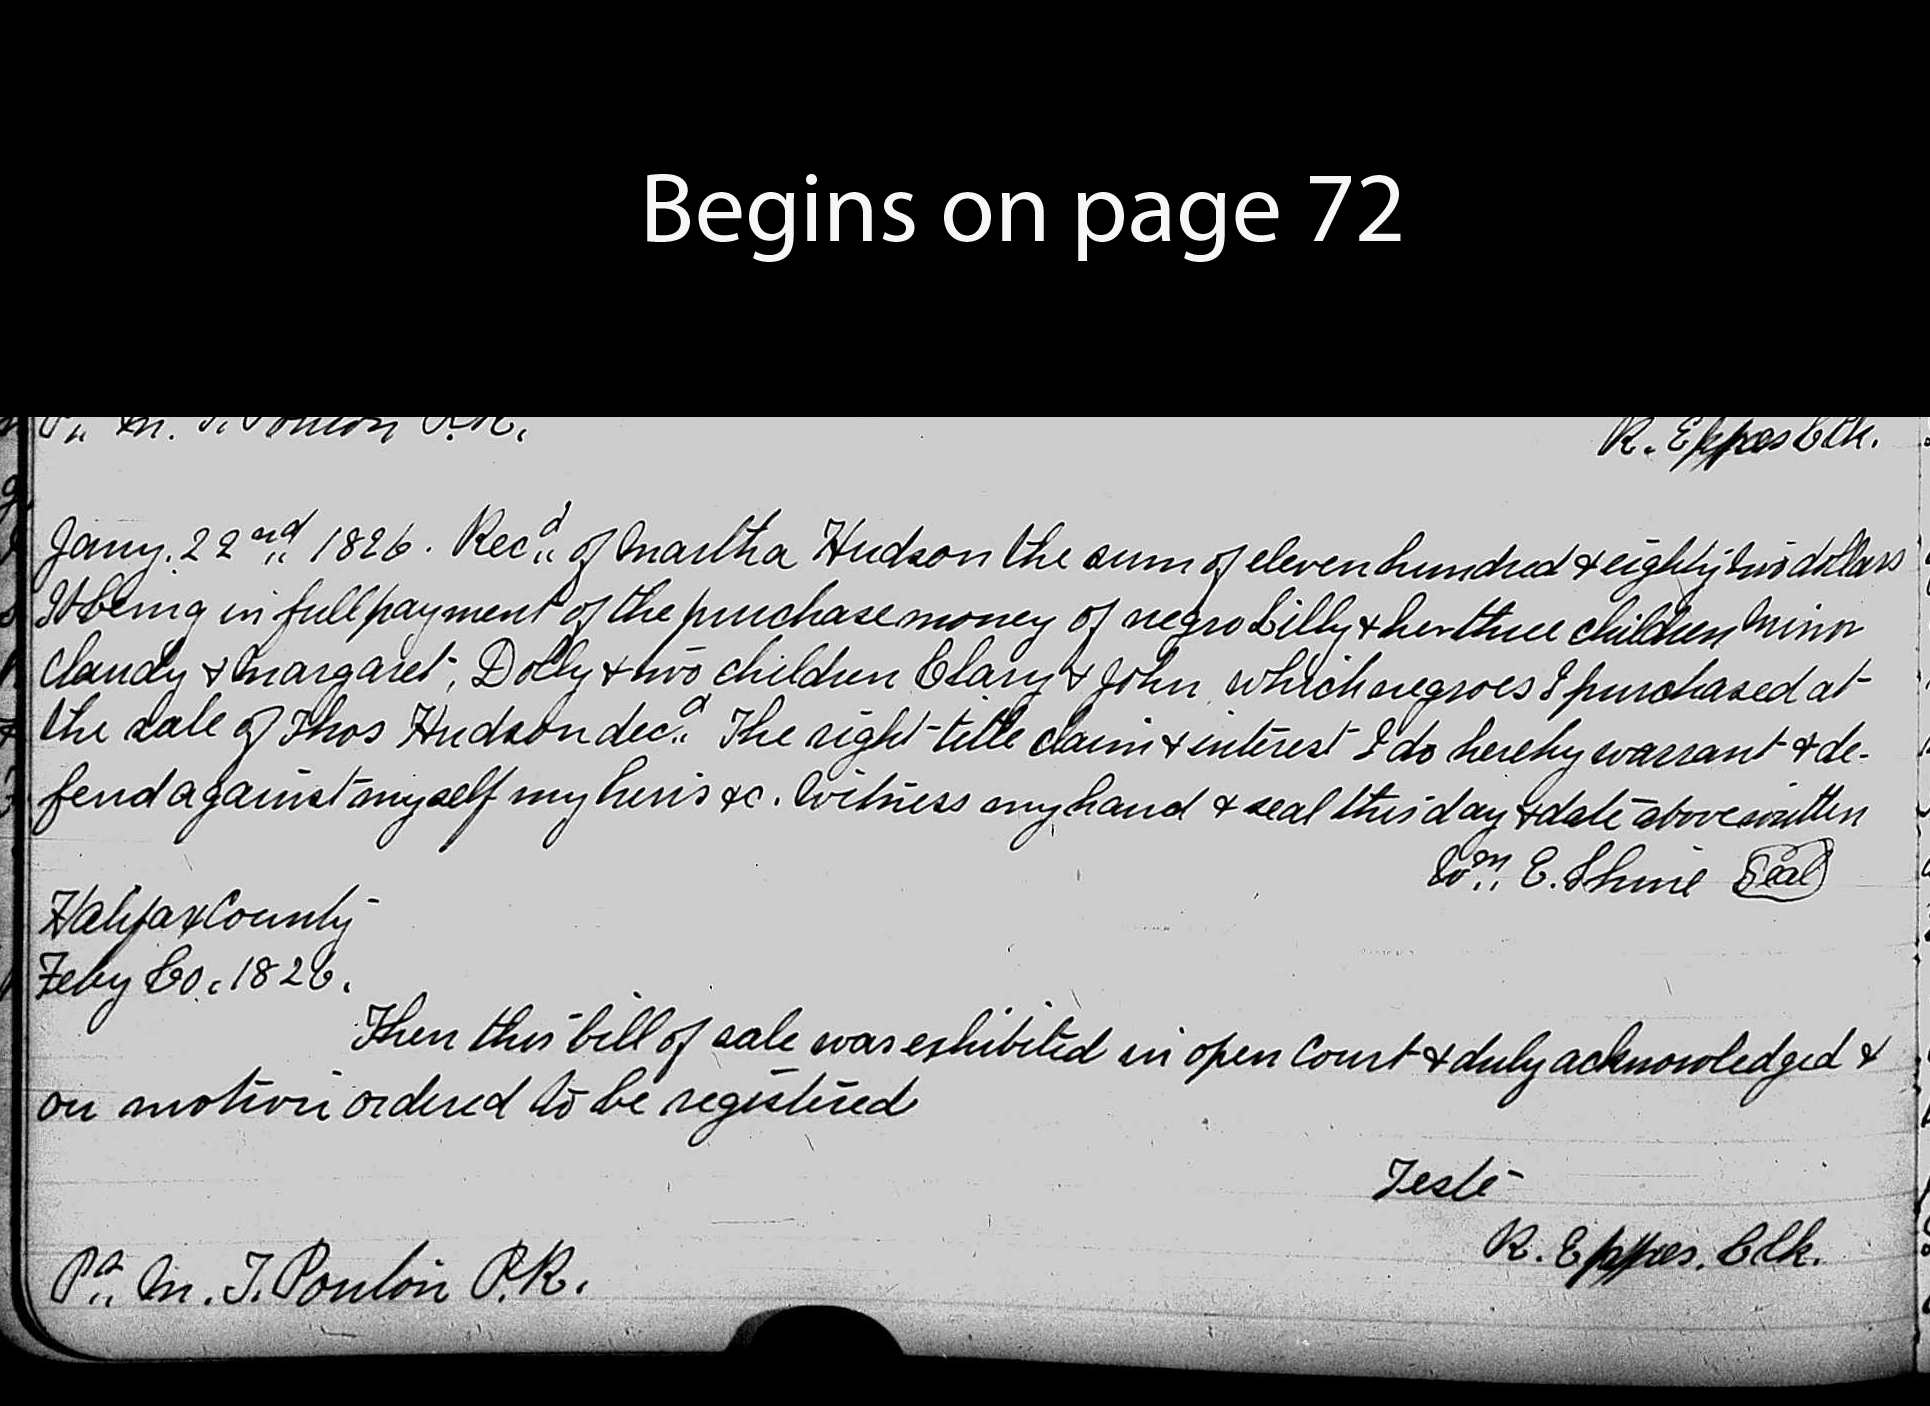 Begins on page 72
R. Eppes Clk.
Jany. 22nd 1826. Recd of Martha Hudson the sum of eleven hundred & eighty two dollars
It being in full payment of the purchase money of negro Lilly & her three children
Claudy & Margaret, Dolly & two children Clary & John which negroes I purchased at
the sale of Thos Hudson decd The right title claim & interest I do hereby warrant & de-
fend against myself my heris &c. Witness my hand & seal this day & date above written
Wm E. Shine Seal
Halifax County
Feby Co. 1826.
Then this bill of sale was exhibited in open Court & duly acknowledged &
on motion ordered to be registered
Teste
R. Eppes. Clk.
M. T. Ponton P.R.